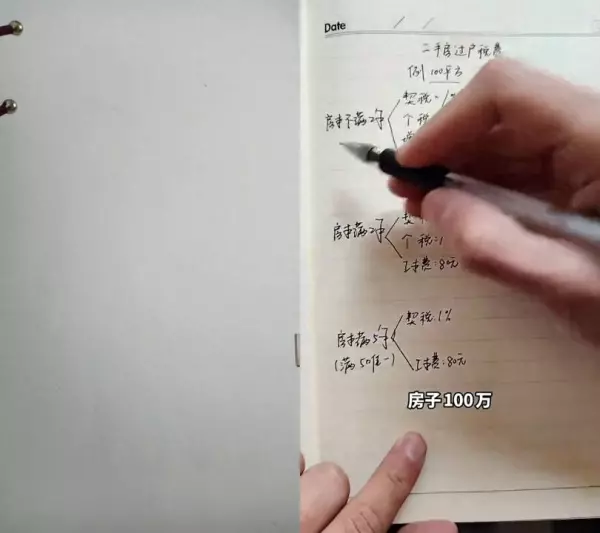 Date / /
二手房过户税费
例 100平方
契税：1%
房本不满2年
个税
房本满2年
契
个税：1
工本费：80元
契税 1%
房本满5年
(满5唯一)
工本费：80元
房子100万